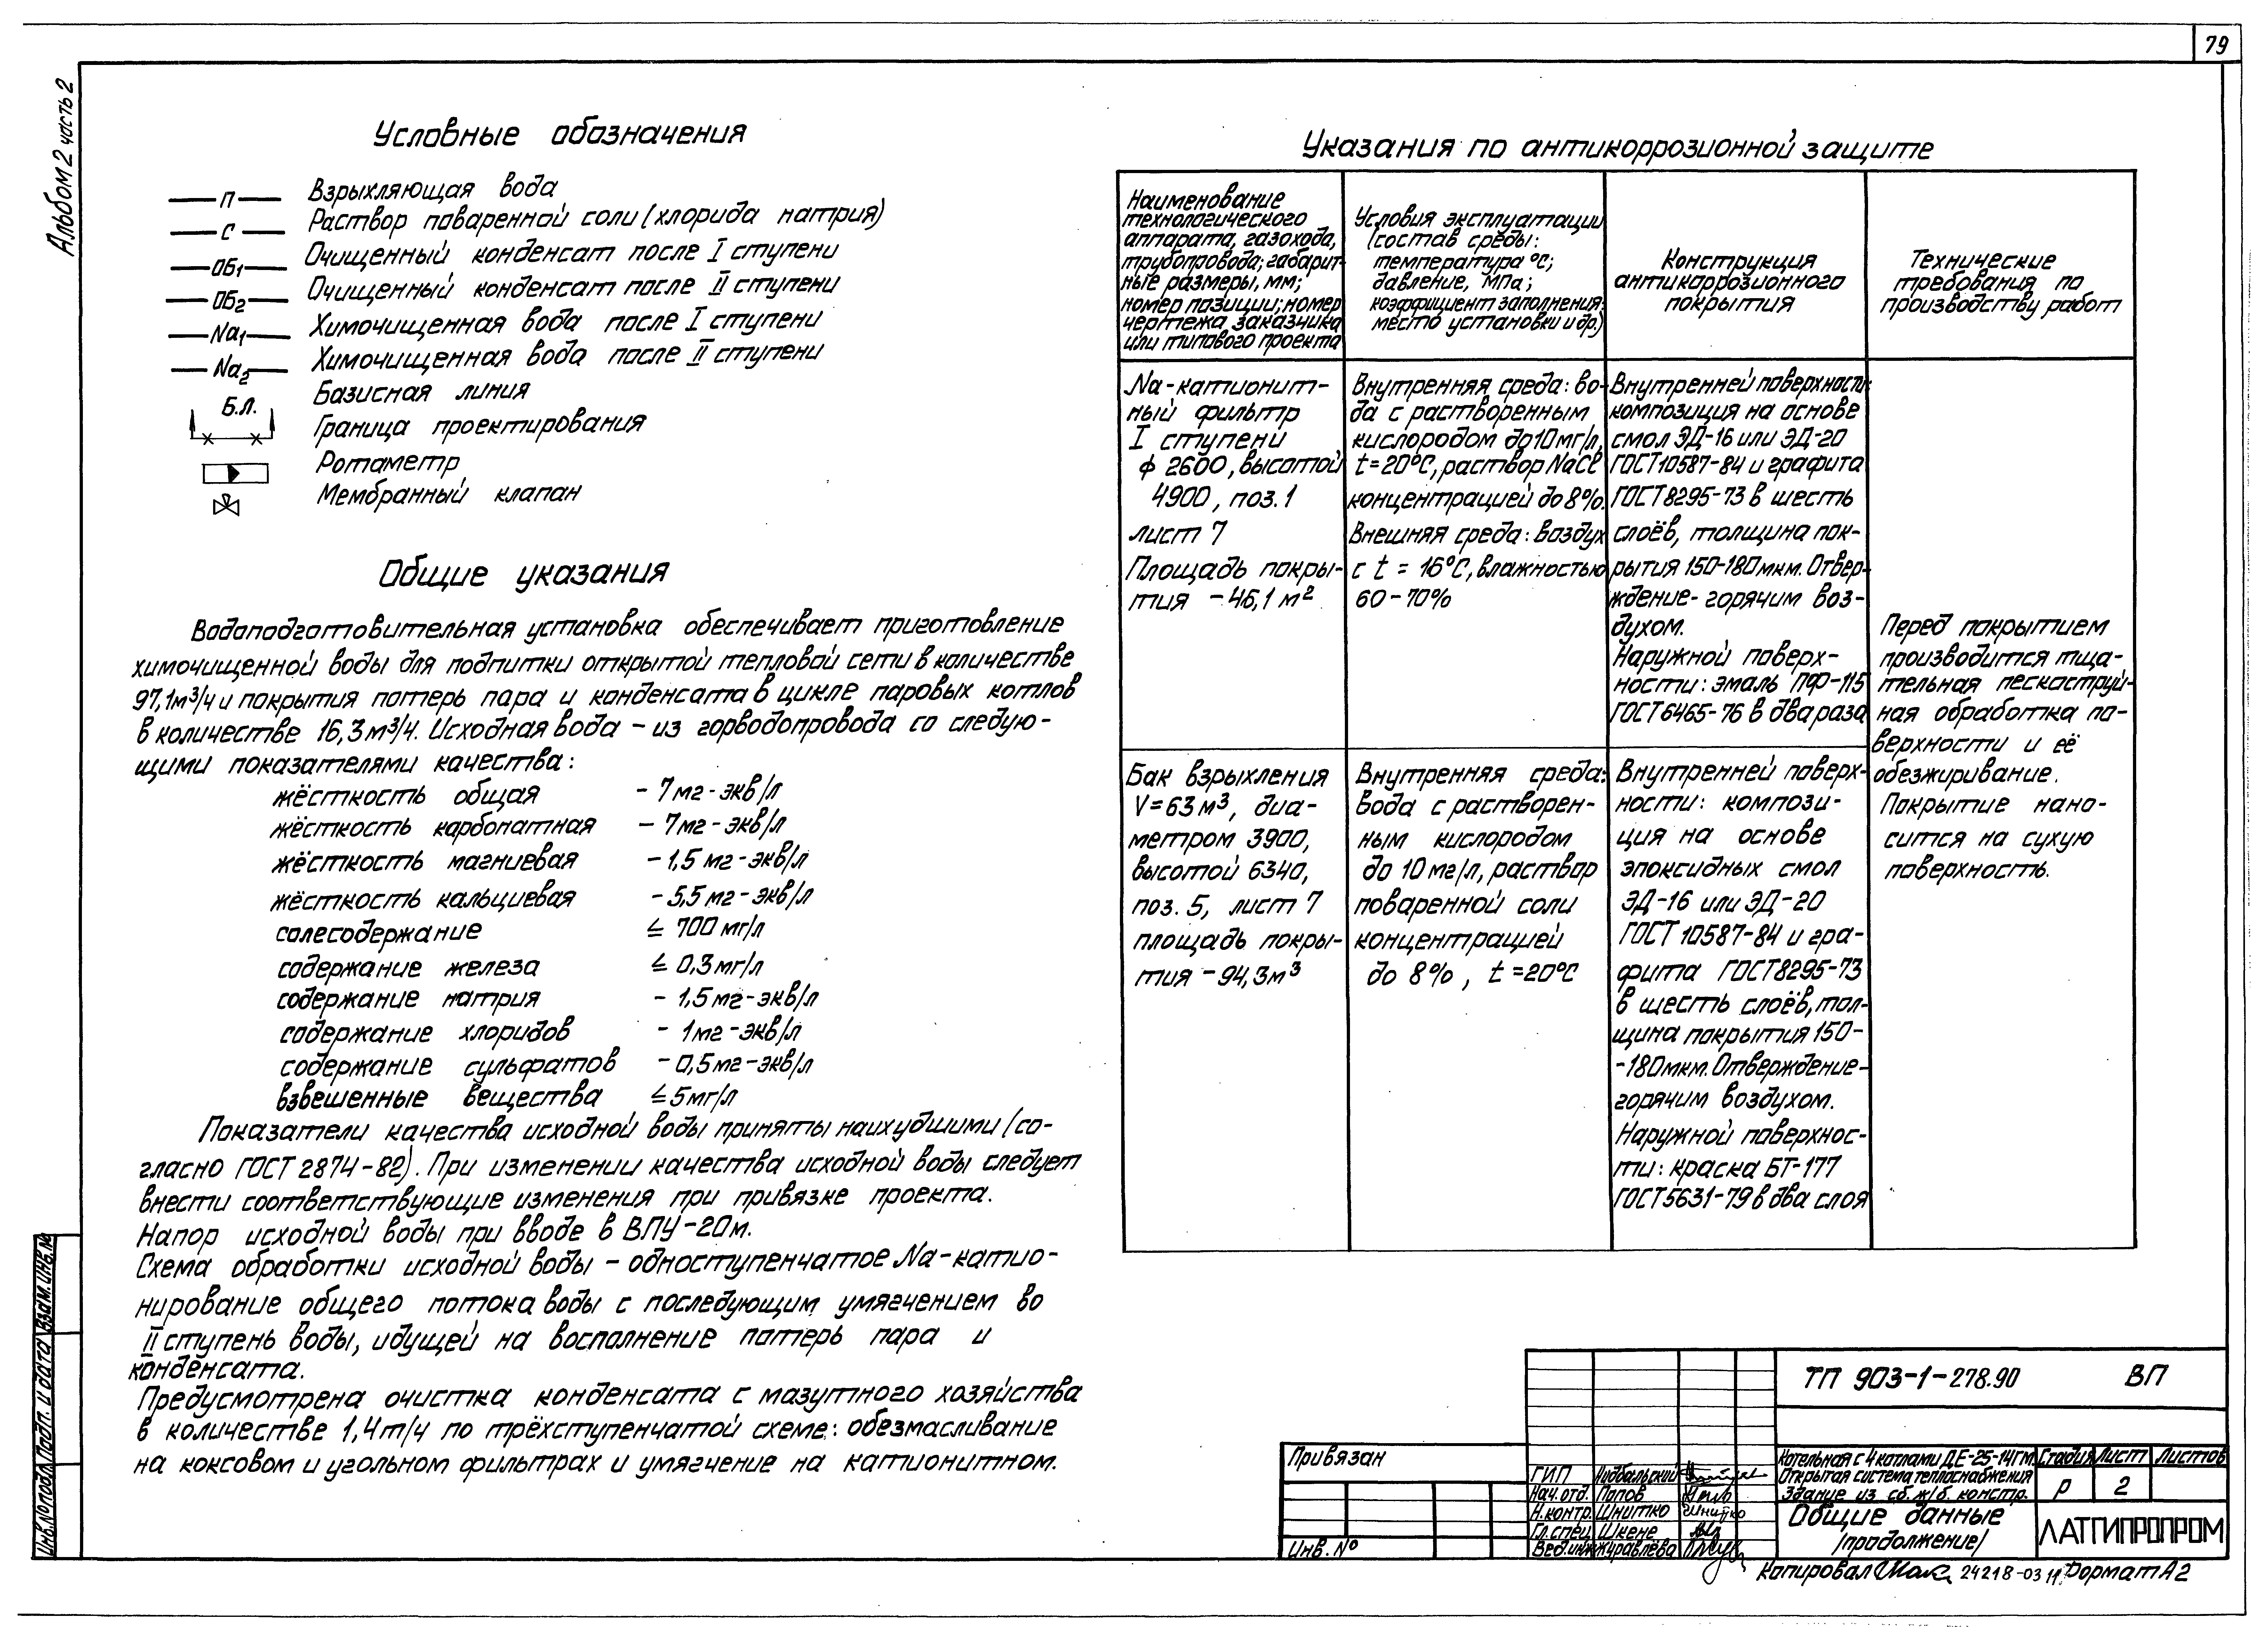 79
Альбом 2 часть 2
Условные обозначения
П Взрыхляющая вода
С Раствор поваренной соли (хлорида натрия)
ОБ1 Очищенный конденсат после I ступени
ОБ2 Очищенный конденсат после II ступени
Na1 Химочищенная вода после I ступени
Na2 Химочищенная вода после II ступени
Б.Л. Базисная линия
Граница проектирования
Ротаметр
Мембранный клапан
Общие указания
Водоподготовительная установка обеспечивает приготовление
химочищенной воды для подпитки открытой тепловой сети в количестве
97,1м³/ч и покрытия потерь пара и конденсата в цикле паровых котлов
в количестве 16,3м³/ч. Исходная вода – из горводопровода со следую-
щими показателями качества:
жёсткость общая – 7мг-экв/л
жёсткость карбонатная – 7мг-экв/л
жёсткость магниевая – 1,5мг-экв/л
жёсткость кальциевая – 5,5мг-экв/л
солесодержание ≤ 700мг/л
содержание железа ≤ 0,3мг/л
содержание натрия – 1,5мг-экв/л
содержание хлоридов – 1мг-экв/л
содержание сульфатов – 0,5мг-экв/л
взвешенные вещества ≤5мг/л
Показатели качества исходной воды приняты наихудшими (со-
гласно ГОСТ 2874-82). При изменении качества исходной воды следует
внести соответствующие изменения при привязке проекта.
Напор исходной воды при вводе в ВПУ-20м.
Схема обработки исходной воды – одноступенчатое Na-катио-
нирование общего потока воды с последующим умягчением во
II ступень воды, идущей на восполнение потерь пара и
конденсата.
Предусмотрена очистка конденсата с мазутного хозяйства
в количестве 1,4т/ч по трёхступенчатой схеме: обезмасливание
на коксовом и угольном фильтрах и умягчение на катионитном.
Указания по антикоррозионной защите
Наименование
технологического
аппарата, газохода,
трубопровода; габарит-
ные размеры, мм;
номер позиции; номер
чертежа заказчика
или типового проекта
Условия эксплуатации
(состав среды:
температура °С;
давление, МПа;
коэффициент заполнения;
место установки и др.)
Конструкция
антикоррозионного
покрытия
Технические
требования по
производству работ
Na-катионит-
ный фильтр
I ступени
ф 2600, высотой
4900, поз.1
лист 7
Площадь покры-
тия – 46,1 м²
Внутренняя среда: во-
да с растворенным
кислородом до 10мг/л,
t=20°С, раствор NaCl
концентрацией до 8%.
Внешняя среда: воздух
с t = 16°С, влажностью
60-70%
Внутренней поверхности:
композиция на основе
смол ЭД-16 или ЭД-20
ГОСТ10587-84 и графита
ГОСТ8295-73 в шесть
слоёв, толщина пок-
рытия 150-180мкм. Отвер-
ждение-горячим воз-
духом.
Наружной поверх-
ности: эмаль ПФ-115
ГОСТ6465-76 в два раза
Перед покрытием
производится тща-
тельная пескоструй-
ная обработка по-
верхности и её
обезжиривание.
Покрытие нано-
сится на сухую
поверхность.
Бак взрыхления
V=63м³, диа-
метром 3900,
высотой 6340,
поз. 5, лист 7
площадь покры-
тия – 94,3м³
Внутренняя среда:
вода с растворен-
ным кислородом
до 10мг/л, раствор
поваренной соли
концентрацией
до 8%, t=20°С
Внутренней поверх-
ности: компози-
ция на основе
эпоксидных смол
ЭД-16 или ЭД-20
ГОСТ 10587-84 и гра-
фита ГОСТ8295-73
в шесть слоёв, тол-
щина покрытия 150-
-180мкм. Отверждение-
горячим воздухом.
Наружной поверхнос-
ти: краска БТ-177
ГОСТ5631-79 в два слоя
Инв.№подл. Подп. и дата Взам.инв.№
Привязан
Инв. №
ГИП
Нач.отд. Попов
Н.контр. Шнитко
Гл.спец. Шкене
Вед.инж. Журавлёва
ТП 903-1-278.90 ВП
Котельная с 4 котлами ДЕ-25-14ГМ.
Открытая система теплоснабжения
Здание из сб. ж/б. констр.
Стадия Лист Листов
Р 2
Общие данные
/продолжение/
ЛАТГИПРОПРОМ
Копировал 24218-03 Формат А2